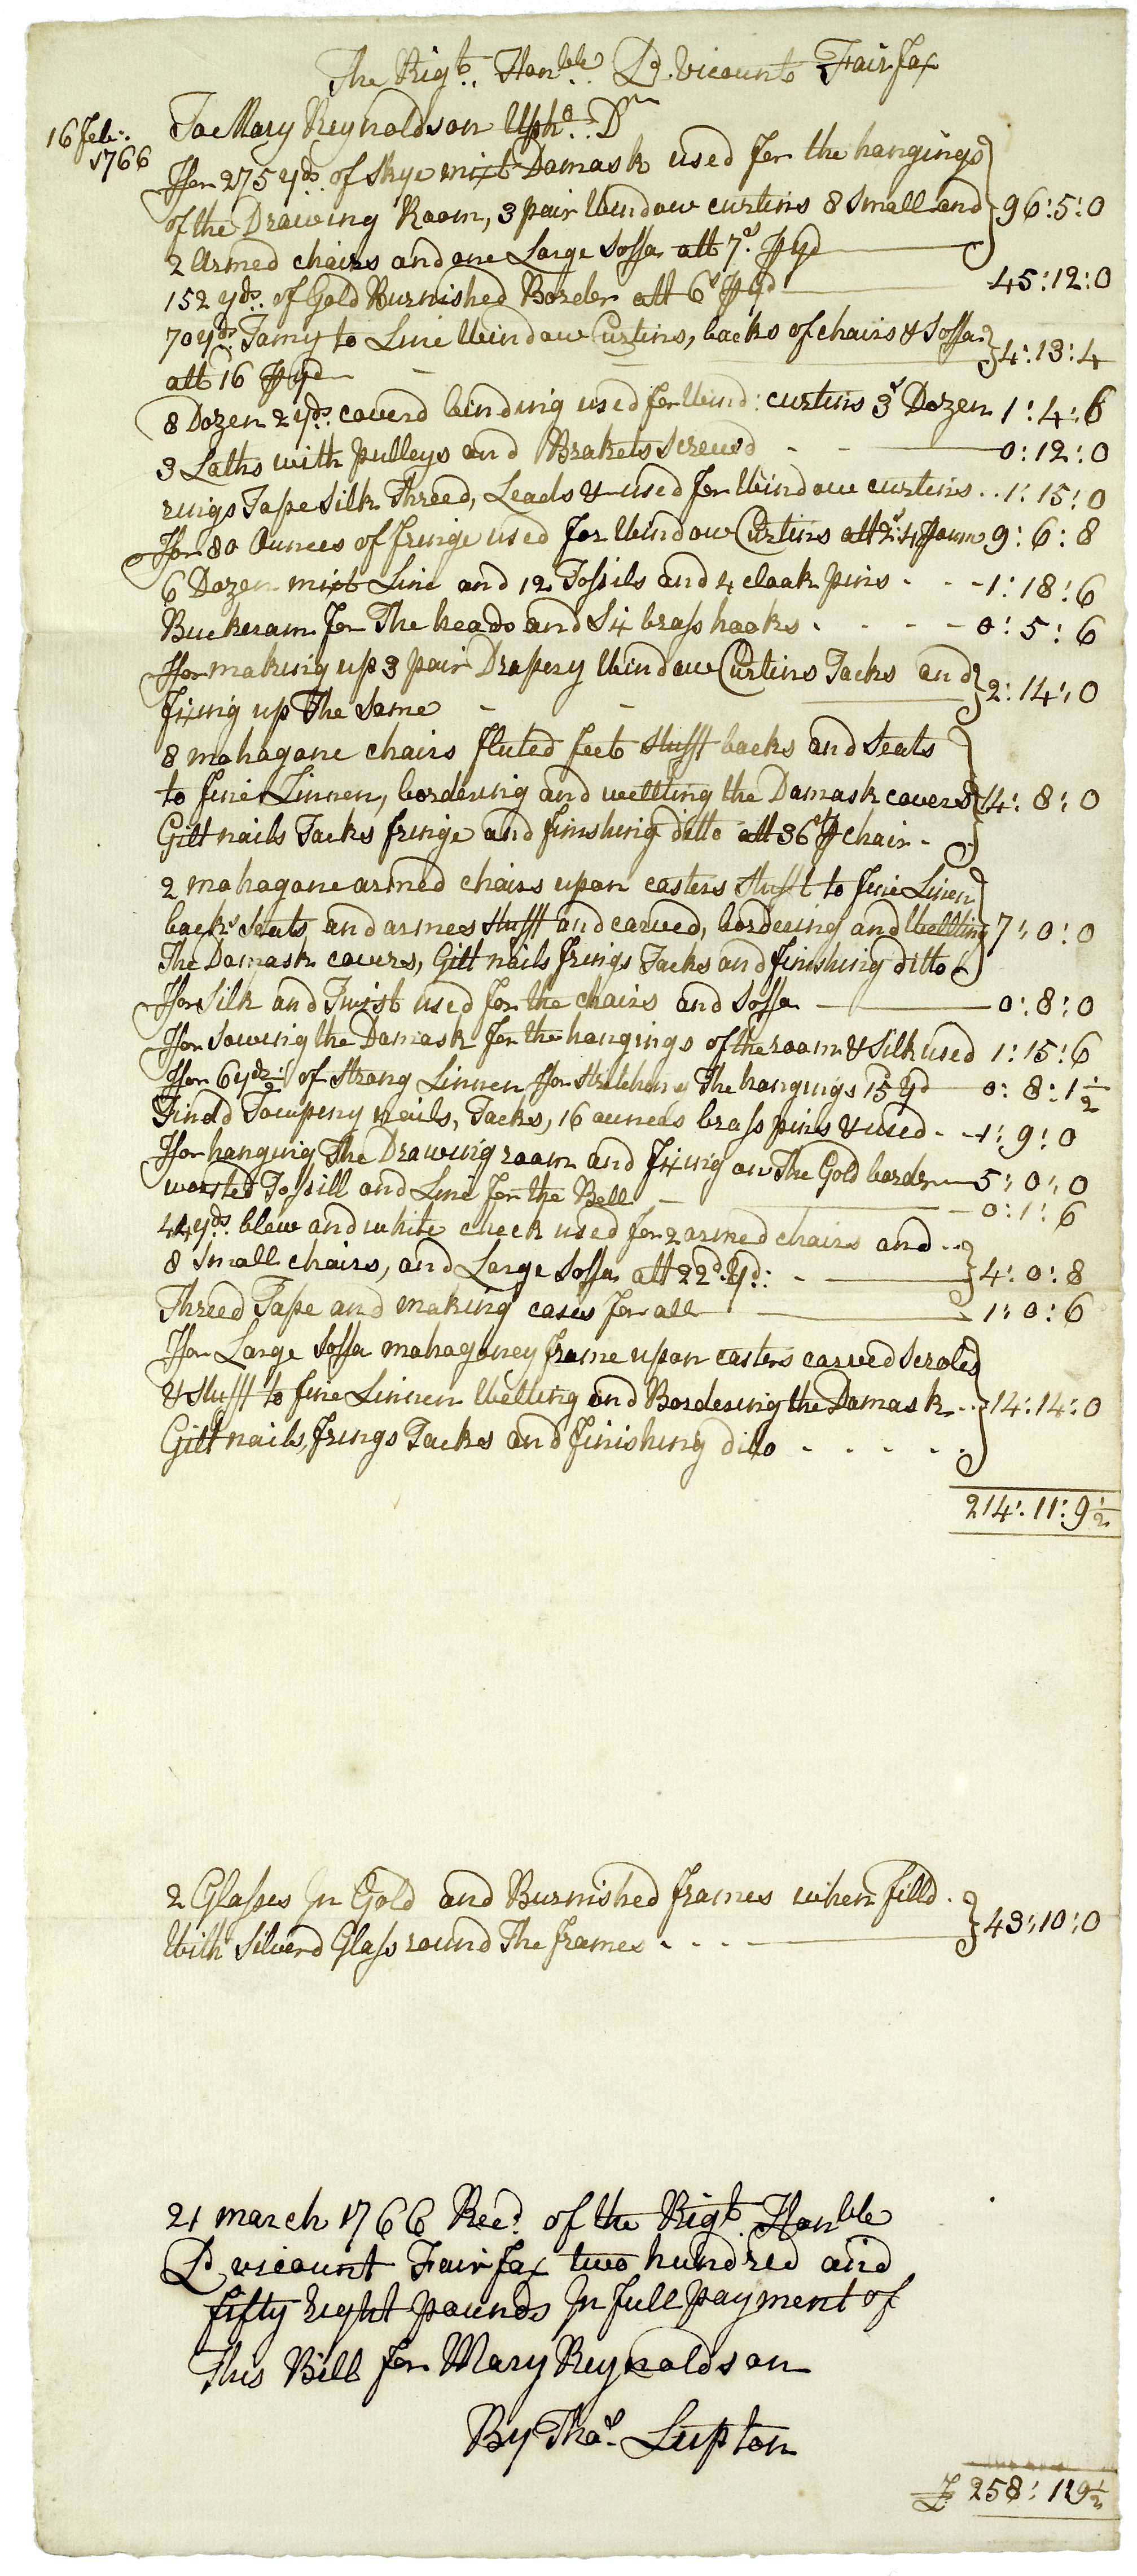 The Rigt. Honble. Ld. Vicount Fairfax
16 Feb:
1766
To Mary Reynoldson Uphr. Dr
ffor 275 yds. of Skye mixt Damask used for the hangings
of the Drawing Room, 3 pair Window curtins 8 Small and
2 Armed chairs and one Large Soffa att 7s. ⅌ yd 96:5:0
152 yds. of Gold Burnished Border att 6s ⅌ yd 45:12:0
70 yds. Tamy to Line Window Curtins, backs of chairs & Soffa
att 16 ⅌ yd 4:13:4
8 Dozen 2 yds. coverd binding used for Wind: curtins 3s Dozen 1:4:6
3 Laths with pulleys and Brakets Screwd 0:12:0
rings Tape Silk Threed, Leads & used for Window curtins 1:15:0
ffor 80 Ounces of fringe used for Window Curtins att 2s:4 ⅌ oun 9:6:8
6 Dozen mixt Line and 12 Tossils and 4 cloak pins 1:18:6
Buckeram for The heads and 54 brass hooks 0:5:6
ffor making up 3 pair Drapery Window Curtins Tacks and
fixing up The Same 2:14:0
8 mahogane chairs fluted feet stufft backs and Seats
to fine Linnen, bordering and weltting the Damask covers
Gilt nails Tacks fringe and finishing ditto att 36s ⅌ chair 14:8:0
2 mahogane armed chairs upon casters stufft to fine Linen
backs Seats and armes stufft and carved, bordering and Weltting
The Damask covers, Gilt nails frings Tacks and finishing ditto 7:0:0
ffor Silk and Twist used for the chairs and Soffa 0:8:0
ffor Sowing the Damask for the hangings of the room & Silk used 1:15:6
ffor 6 yds ½ of Strong Linnen ffor stretching The hangings 15d yd 0:8:1½
Tinnd Towpeny nails, Tacks, 16 ounces brass pins & used 1:9:0
ffor hanging The Drawing room and fixing on The Gold border 5:0:0
worsted Tossill and Line for the Bell 0:1:6
44 yds. blew and white check used for 2 armed chairs and
8 Small chairs, and Large Soffa att 22d. Yd: 4:0:8
Threed Tape and making cases for all 1:0:6
ffor Large Soffa mahagoney frame upon casters carved Scroles
& stufft to fine Linnen Welting and Bordering the Damask
Gilt nails, frings Tacks and finishing ditto 14:14:0
214:11:9½
2 Glasses In Gold and Burnished frames when filld
With Silverd Glass round The frames 43:10:0
21 march 1766 Reed. of the Rigt. Honble
Ld vicount Fairfax two hundred and
fifty Eight pounds In full payment of
This Bill for Mary Reynoldson
By Thos. Lupton
£ 258:1:9½